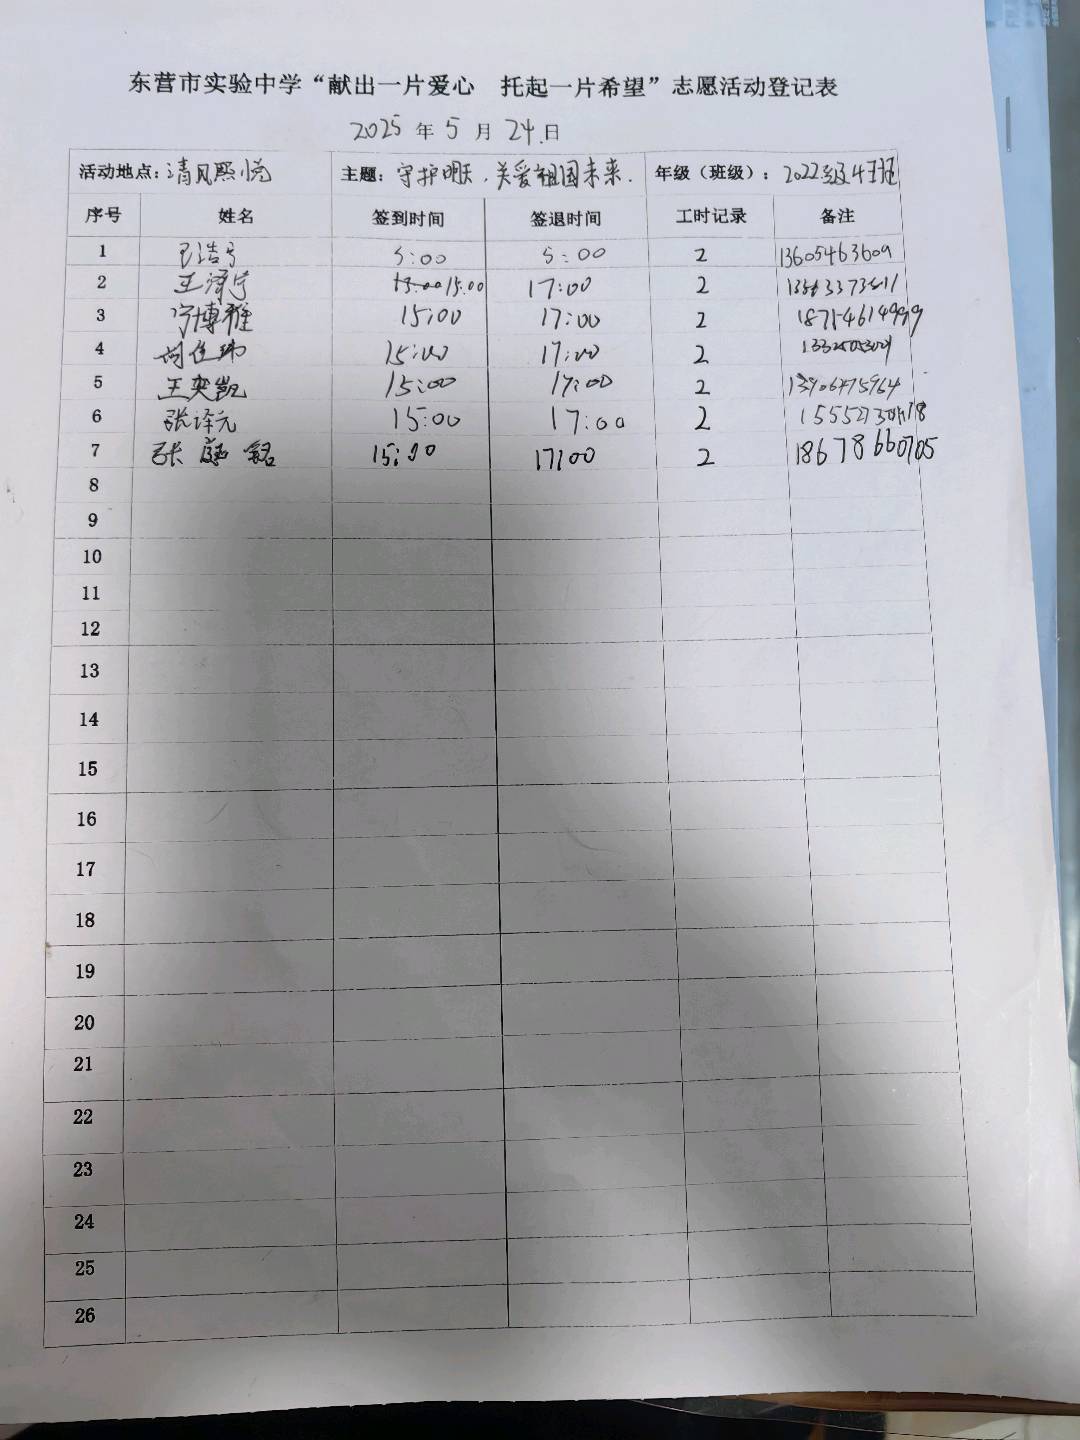 东营市实验中学“献出一片爱心 托起一片希望”志愿活动登记表
2025年5月24日
活动地点：清风熙悦 主题：守护明天，关爱祖国未来. 年级（班级）：2022级4班
序号 姓名 签到时间 签退时间 工时记录 备注
1 5:00 5:00 2 13605463609
2 王泽宇 15:00 17:00 2
3 宁博雅 15:00 17:00 2 18754614999
4 15:00 17:00 2
5 王奕凯 15:00 17:00 2
6 张译元 15:00 17:00 2
7 张 铭 15:00 17:00 2 18678660705
8
9
10
11
12
13
14
15
16
17
18
19
20
21
22
23
24
25
26